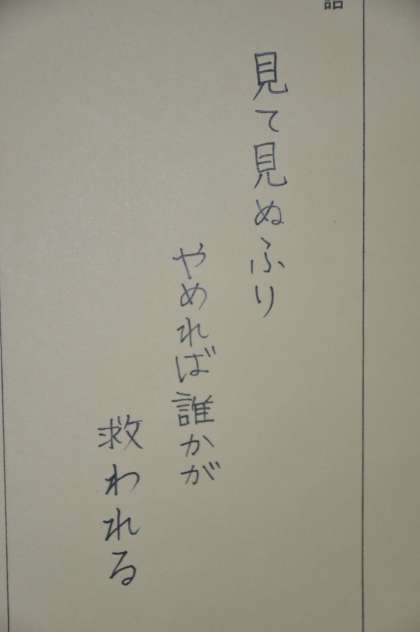 見て見ぬふり
やめれば誰かが
救われる